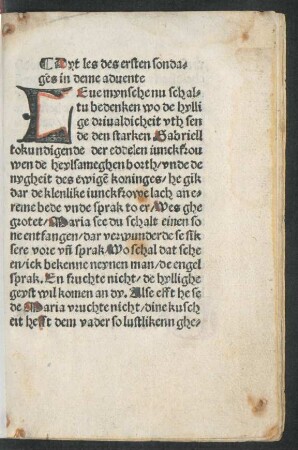 ¶ Dyt les des ersten sonda-
ges in deme aduente
LEue mynsche nu schal-
tu bedenken wo de hylli
ge driualdicheit vth sen
de den starken Gabriell
to kundigende der eddelen iunckfrou
wen de heylsameghen borth/vnde de
nygheit des ewigē koninges/he gik
dar de klenlike iunckfrowe lach an e-
reme bede vnde sprak to er/Wes ghe
grotet/Maria see du schalt einen so
ne entfangen/dar verwunderde se sik
sere vore vn̄ sprak/Wo schal dat sche
en/ick bekenne neynen man/de engel
sprak. En fruchte nicht/de hyllighe
geyst wil komen an dy. Alse efft he se
de Maria vruchte nicht/dine kusch
eit hefft dem vader so lustlikenn ghe-